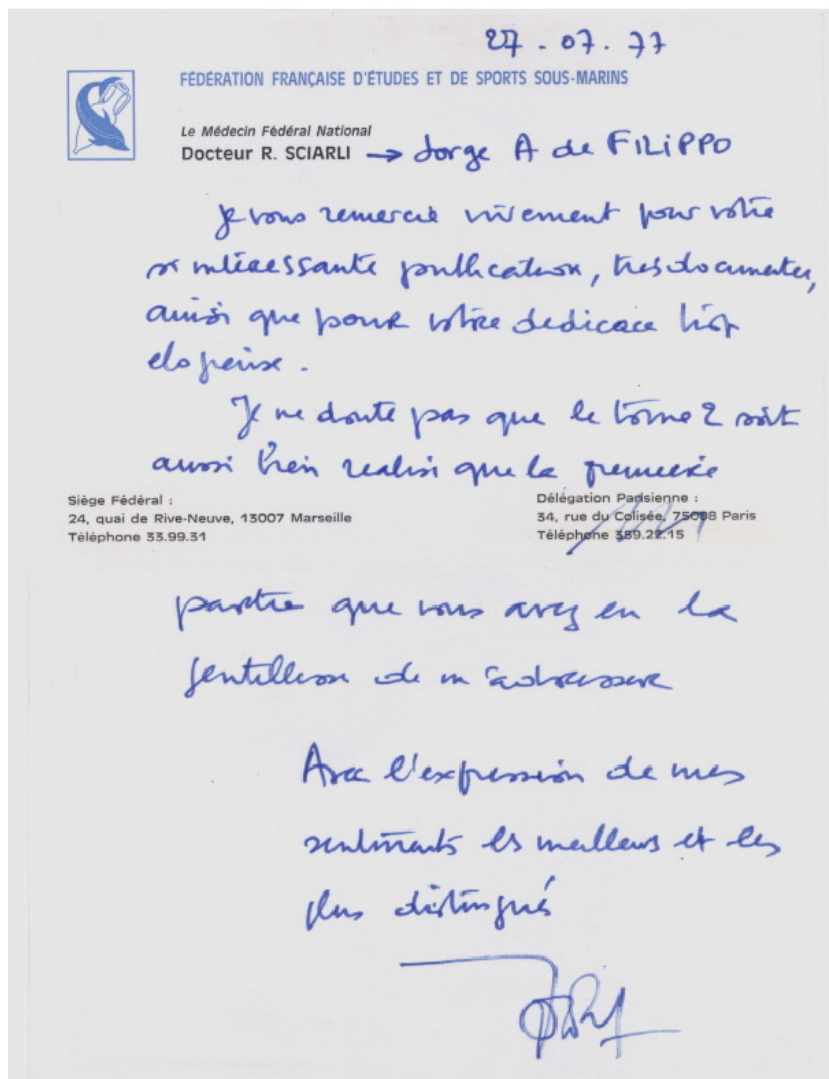 27.07.77
FÉDÉRATION FRANÇAISE D'ÉTUDES ET DE SPORTS SOUS-MARINS
Le Médecin Fédéral National
Docteur R. SCIARLI → Jorge A de FILIPPO
Je vous remercie vivement pour votre
si intéressante publication, très documentée,
ainsi que pour votre dedicace très
elogieuse.
Je ne doute pas que le tome 2 soit
aussi bien realisé que la premiere
Siège Fédéral :
24, quai de Rive-Neuve, 13007 Marseille
Téléphone 33.99.31
Délégation Parisienne :
34, rue du Colisée, 75008 Paris
Téléphone 359.22.15
partie que vous avez eu la
gentillesse de m'adresser
Avec l'expression de mes
sentiments les meilleurs et les
plus distingués